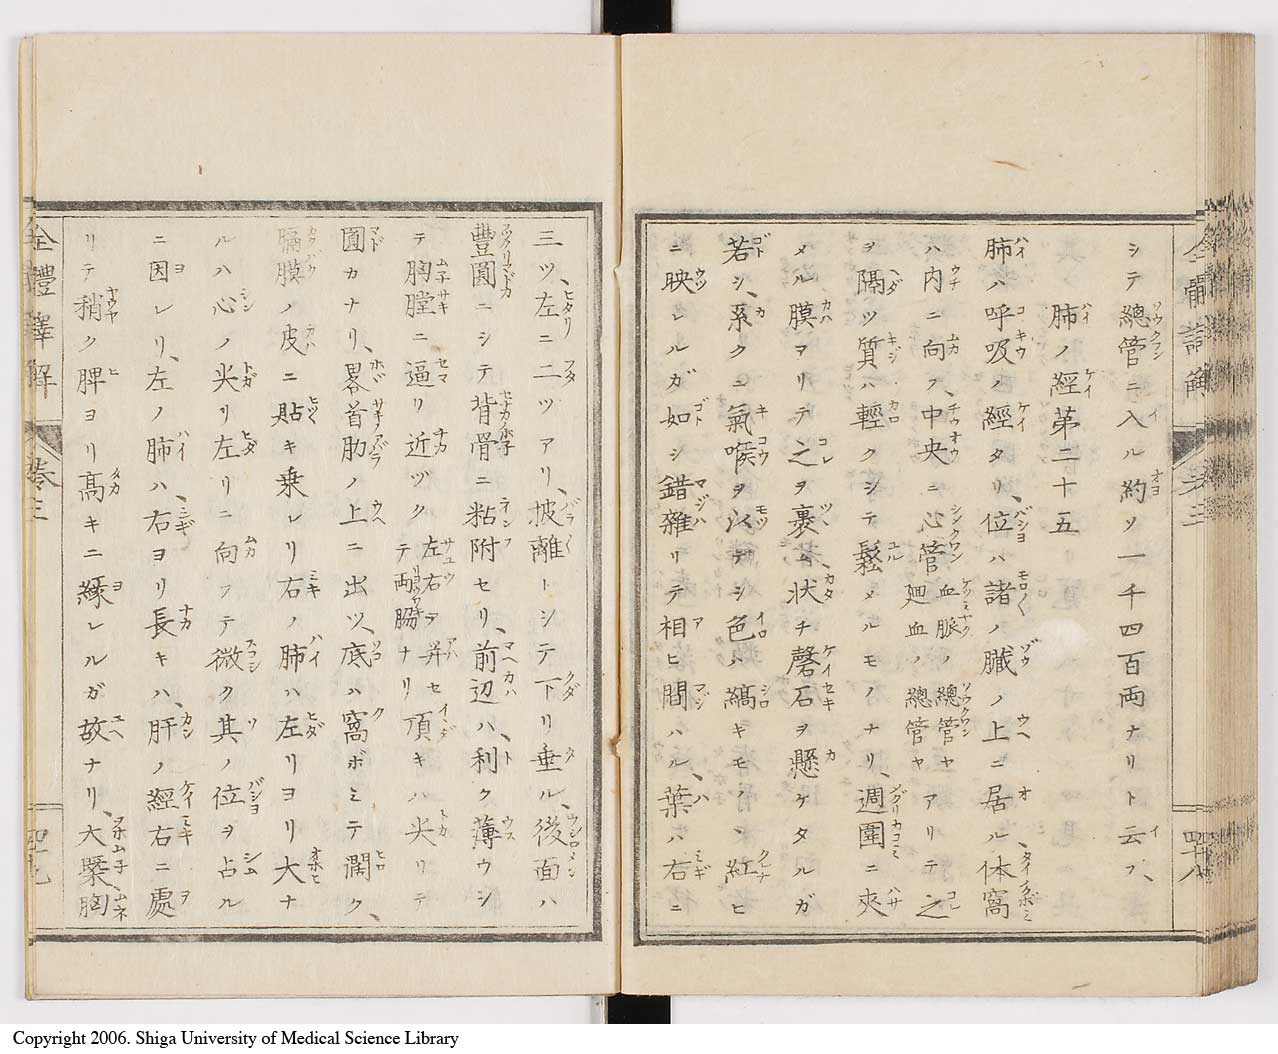 シテ總管ニ入ル約ソ一千四百両ナリト云フ、
肺ノ經第二十五
肺ハ呼吸ノ經タリ、位ハ諸ノ臓ノ上ニ居ル、体窩
ハ内ニ向フ、中央ニ心管血脈ノ總管ヤ廻血ノ總管ヤアリテ之
ヲ隔ツ質ハ輕クシテ鬆メルモノナリ、週圍ニ夾
メル膜アリテ之ヲ裹ム、状チ磬石ヲ懸ケタルガ
若シ、系クニ氣喉ヲ以テシ色ハ縞キモノニ紅ヒ
ニ映レルガ如シ錯雜リテ相ヒ間ハル、葉ハ右ニ
三ツ、左ニ二ツアリ、披離トシテ下リ垂ル、後面ハ
豐圓ニシテ背骨ニ粘附セリ、前辺ハ、利ク薄ウシ
テ胸膛ニ逼リ近ヅク左右ヲ并セテ両脇ナリ頂キハ尖リテ
圓カナリ、畧首肋ノ上ニ出ツ、底ハ窩ボミテ濶ク、
膈膜ノ皮ニ貼キ乗レリ右ノ肺ハ左リヨリ大ナ
ルハ心ノ尖リ左リニ向フテ微ク其ノ位ヲ占ル
ニ因レリ、左ノ肺ハ、右ヨリ長キハ、肝ノ經右ニ處
リテ稍ク脾ヨリ高キニ縁レルガ故ナリ、大槩胸
全體譯解
卷三
四十九
卷三
四十八
Copyright 2006. Shiga University of Medical Science Library